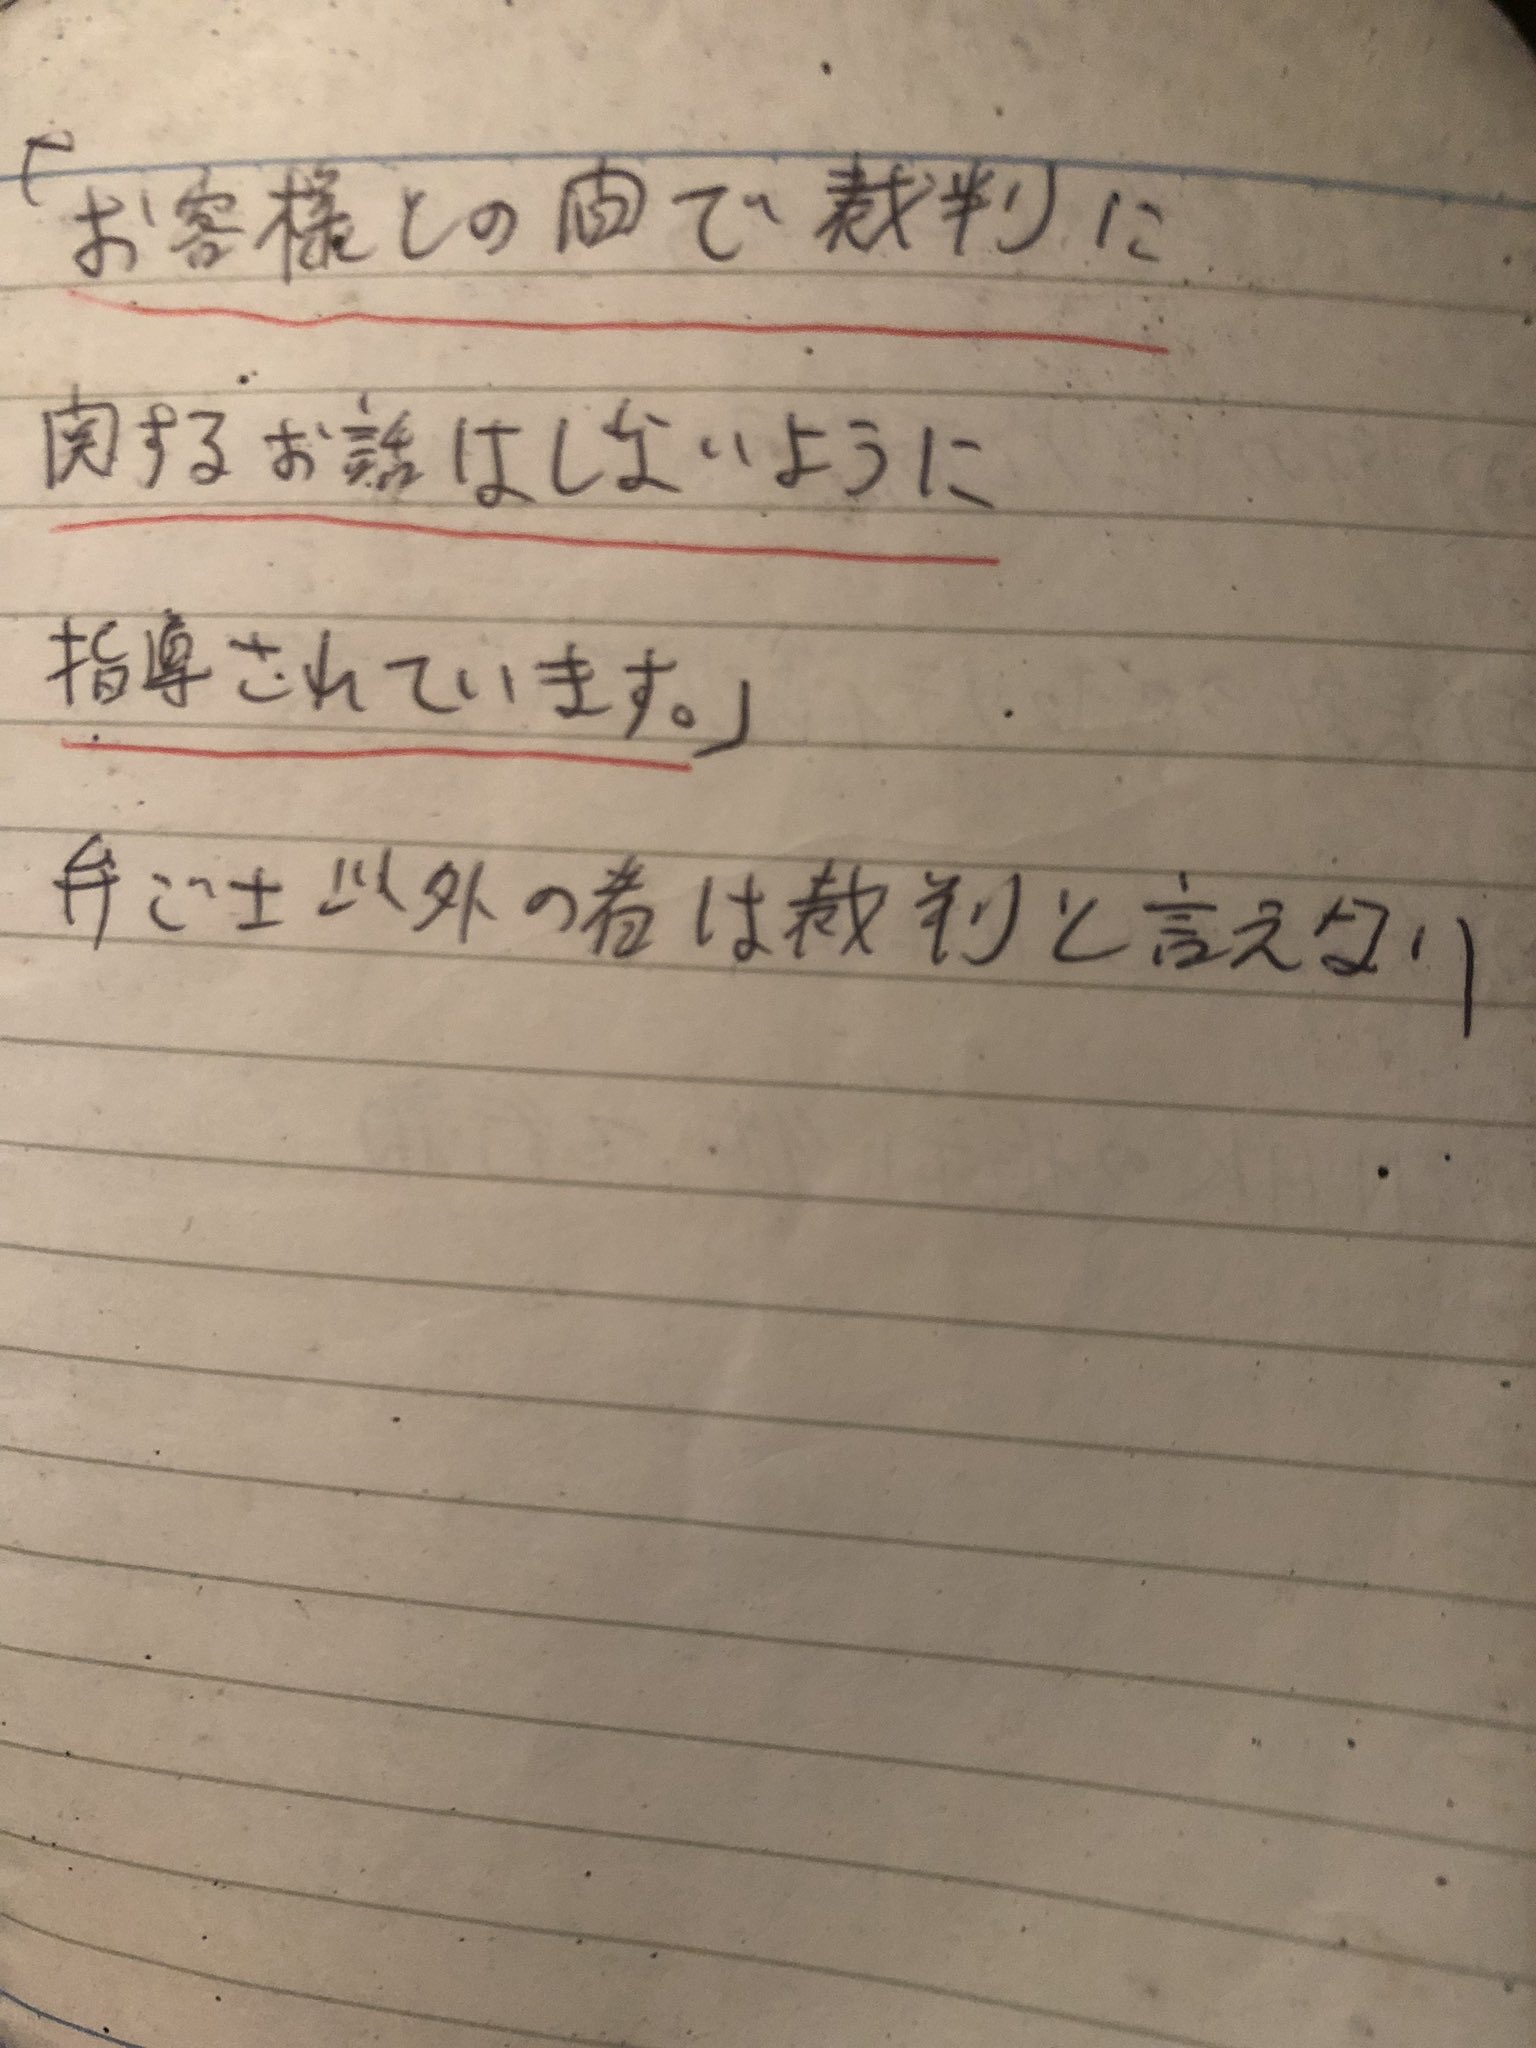 「お客様との間で裁判に
関するお話はしないように
指導されています。」
弁ご士以外の者は裁判と言えない